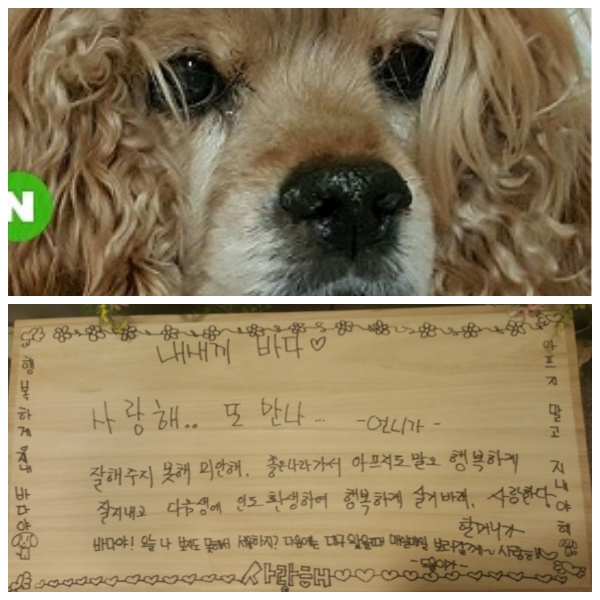 N
내새끼 바다♡
사랑해.. 또 만나...
-언니가-
잘해주지 못해 미안해. 좋은나라가서 아프지도말고 행복하게
잘지내고 다음생에 인도환생하여 행복하게 살기바래, 사랑한다
할머니가
바다야! 오늘 나 보지도 못해서 서운하지? 다음에는
사랑해
행복하게 지내 바다야
아프지 말고 지내야해
사랑해